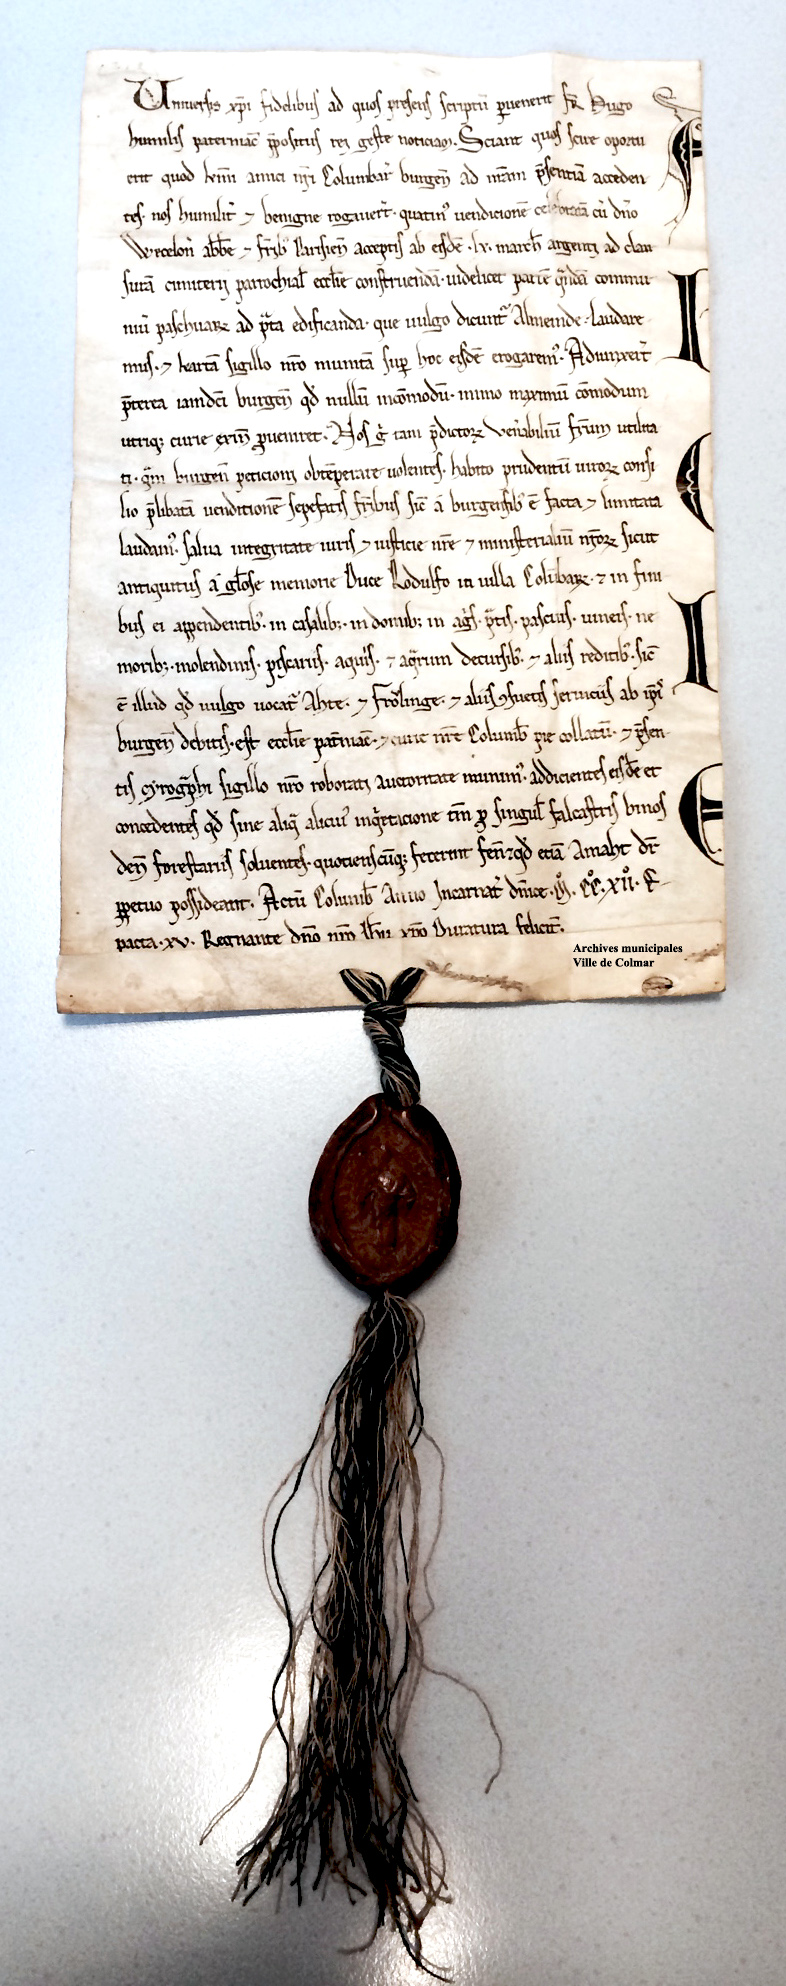 Universis xp̄i fidelibus ad quos presens scriptū pervenerit fr̄ Hugo
humilis paterniac̄ p̄positus rei geste noticiam. Sciant quos scire oportu
erit quod cum amici nr̄i Columbar̄ burgen̄ ad nr̄am p̄sentiā acceden
tes. nos humilit̄ ⁊ benigne rogaver̄t. quatinꝰ vendicionē celebratā cū dn̄o
Wecelon̄ abb̄e ⁊ fr̄ibꝰ Parisien̄ acceptis ab eisdē .lx. march̄ argenti ad clau
surā cimiterii parrochial̄ eccl̄ie construendā. videlicet partē q̄ndā commu
niū paschuarꝝ ad p̄ta edificanda. que vulgo dicunt̄ Almeinde. laudare
musꝰ. ⁊ kartā sigillo nr̄o munitā sup̄ hoc eisdē erogaremꝰ. Adiunxer̄t
p̄terea iamdc̄i burgen̄ qd̄ nullū incōmodū. immo maximū cōmodum
utriqꝫ curie exin̄ p̄veniret. Nos g̊ tam p̄dictorꝝ ven̄abiliū fr̄um utilita
ti. q̄m burgen̄ peticioni obtēperare volentes. habito prudentū virorꝝ consi
lio p̄libatā venditionē sepefatis fr̄ibus sic̄ a burgensibꝰ ē facta ⁊ limitata
laudamꝰ. salva integritate iuris ⁊ iusticie nr̄e ⁊ ministerialiū nr̄orꝝ sicut
antiquitus a gl̄ose memorie Duce Rodulfo in villa Colūbarꝝ. ⁊ in fini
bus ei appendentibꝰ. in casalibꝫ. in domibꝫ. in ag̊s. p̄tis. pascuis. vineis. ne
moribꝫ. molendinis. piscariis. aquis. ⁊ aq̄rum decursibꝰ. ⁊ aliis reditibꝰ. sic̄
ē illud qd̄ vulgo vocat̄ Ahte. ⁊ Frōlinge. ⁊ aliis ꝯsuetis serviciis ab ip̄i
burgen̄ debitis. est eccl̄ie pat̄niac̄. ⁊ curie nr̄e Columb̄ pie collatū. ⁊ p̄sen
tis cyrog̊phi sigillo nr̄o roborati auctoritate munimꝰ. addicientes eisdē et
concedentes qd̄ sine aliq̄ alicuiꝰ inq̄etacione tm̄ p̄ singul̄ falcastris binos
den̄ forestariis solventes. quotienscūqꝫ fecerint fen̄. ⁊ qd̄ etiā Amaht dr̄
p̄petuo possideant. Actū Columb̄ Anno Incarnat̄ dn̄ice. M̊. CC̊. XII̊. E
pacta. xv. Regnante dn̄o nr̄o Ih̄u xp̄o Duratura felicit̄.
Archives municipales
Ville de Colmar